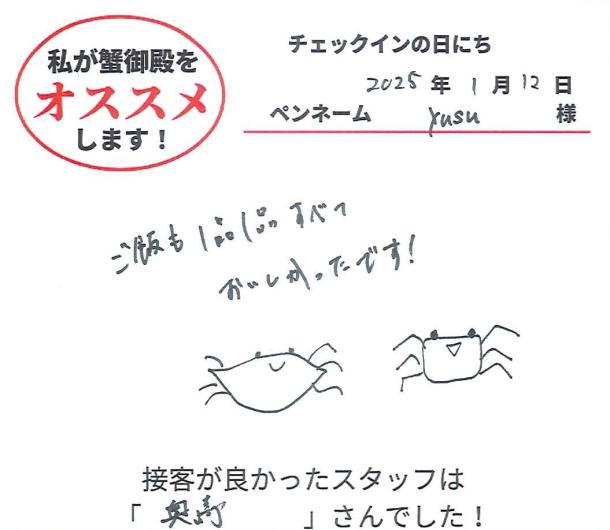 私が蟹御殿を
オススメ
します！
チェックインの日にち
2025年1月12日
ペンネーム yusu 様
ご飯も1品1品すべて
おいしかったです!
接客が良かったスタッフは
「奥嶋」さんでした！